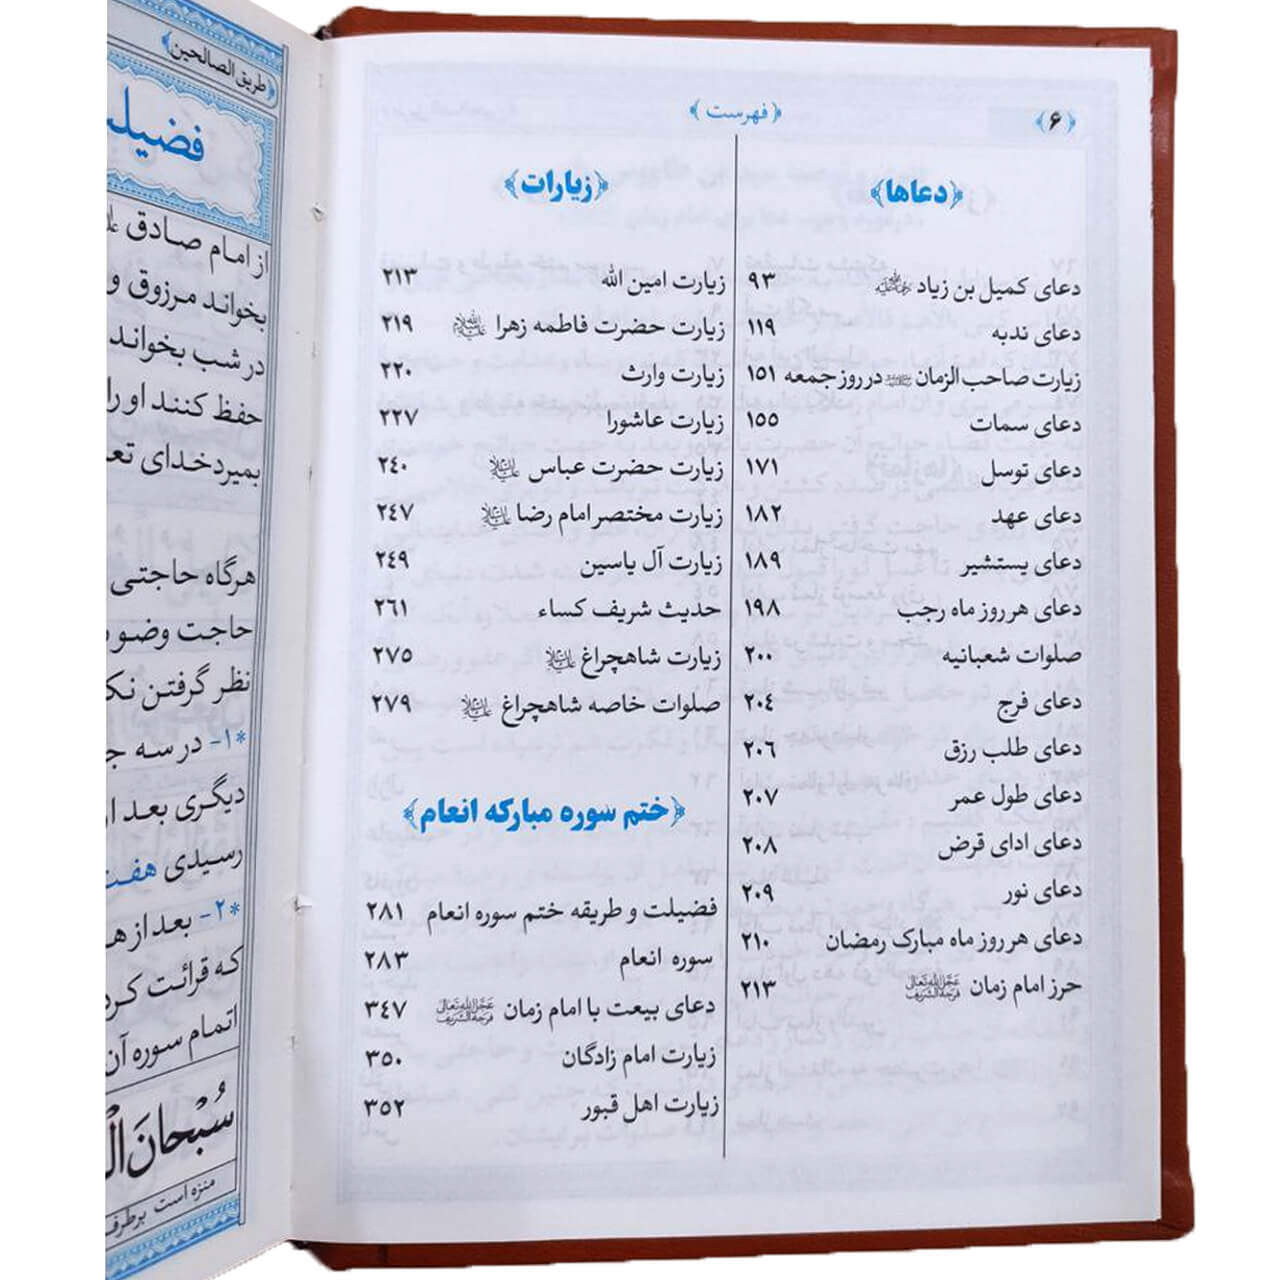 ﴿ ۶ ﴾
﴿ فهرست ﴾
﴿دعاها﴾
دعای کمیل بن زیاد ۹۳
دعای ندبه ۱۱۹
زیارت صاحب الزمان در روز جمعه ۱۵۱
دعای سمات ۱۵۵
دعای توسل ۱۷۱
دعای عهد ۱۸۲
دعای یستشیر ۱۸۹
دعای هر روز ماه رجب ۱۹۸
صلوات شعبانیه ۲۰۰
دعای فرج ۲۰٤
دعای طلب رزق ۲۰٦
دعای طول عمر ۲۰۷
دعای ادای قرض ۲۰۸
دعای نور ۲۰۹
دعای هر روز ماه مبارک رمضان ۲۱۰
حرز امام زمان عَجَّلَ اللهُ تَعَالیٰ فَرَجَهُ الشَّرِیف ۲۱۳
﴿زیارات﴾
زیارت امین الله ۲۱۳
زیارت حضرت فاطمه زهرا ۲۱۹
زیارت وارث ۲۲۰
زیارت عاشورا ۲۲۷
زیارت حضرت عباس ۲٤۰
زیارت مختصر امام رضا ۲٤۷
زیارت آل یاسین ۲٤۹
حدیث شریف کساء ۲٦۱
زیارت شاهچراغ ۲۷۵
صلوات خاصه شاهچراغ ۲۷۹
﴿ختم سوره مبارکه انعام﴾
فضیلت و طریقه ختم سوره انعام ۲۸۱
سوره انعام ۲۸۳
دعای بیعت با امام زمان عَجَّلَ اللهُ تَعَالیٰ فَرَجَهُ الشَّرِیف ۳٤۷
زیارت امام زادگان ۳۵۰
زیارت اهل قبور ۳۵۲
﴿طریق الصالحین﴾
از امام صادق
بخواند مرزوق و
در شب بخواند
حفظ کنند او را
بمیرد خدای
هرگاه حاجتی
حاجت وضو
نظر گرفتن
*۱- در سه
دیگری بعد
رسیدی
*۲- بعد از
که قرائت
اتمام سوره آن
سُبْحانَ
منزه است